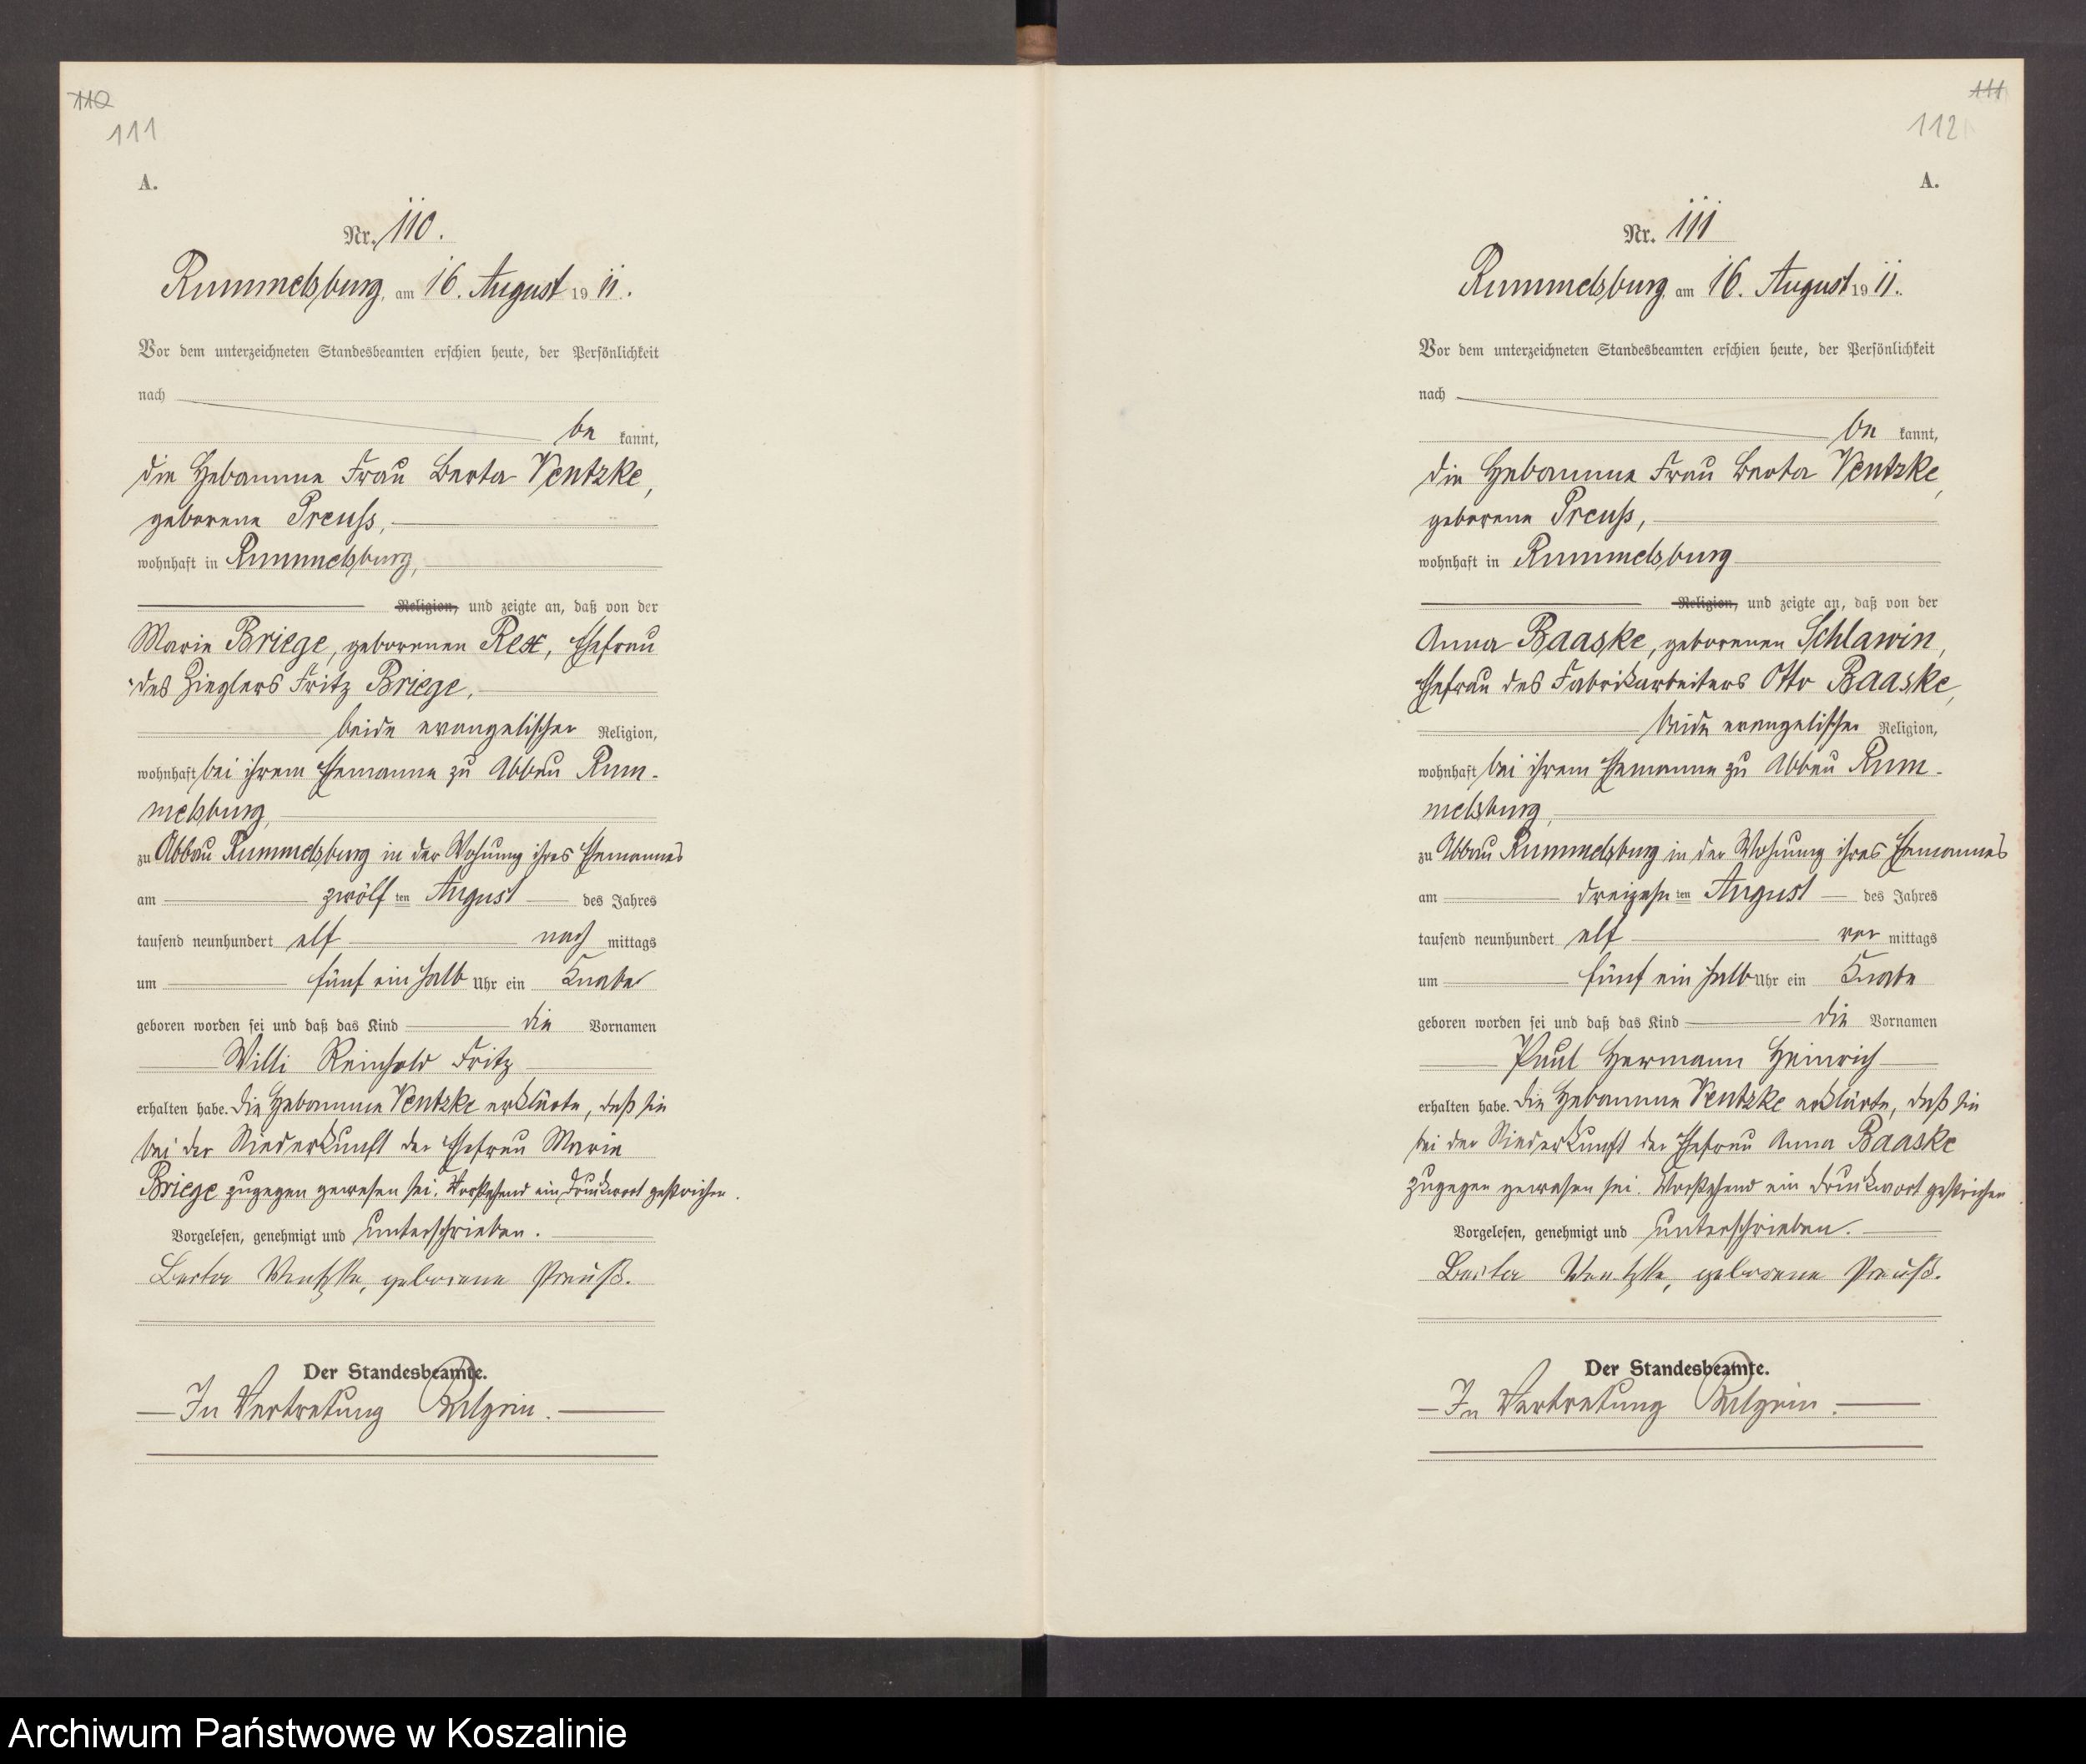 110
111
A.
Nr. 110.
Rummelsburg, am 16. August 1911.
Vor dem unterzeichneten Standesbeamten erschien heute, der Persönlichkeit
nach
be kannt,
die Hebamme Frau Berta Ventzke,
geborene Preuss,
wohnhaft in Rummelsburg,
Religion, und zeigte an, daß von der
Marie Briege, geborenen Rex, Ehefrau
des Zieglers Fritz Briege,
beide evangelischer Religion,
wohnhaft bei ihrem Ehemanne zu Abbau Rum-
melsburg,
zu Abbau Rummelsburg in der Wohnung ihres Ehemannes
am zwölf ten August des Jahres
tausend neunhundert elf nach mittags
um fünf ein halb Uhr ein Knabe
geboren worden sei und daß das Kind die Vornamen
Willi Reinhold Fritz
erhalten habe. Die Hebamme Ventzke erklärte, daß sie
bei der Niederkunft der Ehefrau Marie
Briege zugegen gewesen sei. Vorstehend ein Druckwort gestrichen.
Vorgelesen, genehmigt und unterschrieben.
Berta Ventzke, geborene Preuß.
Der Standesbeamte.
In Vertretung
111
112
A.
Nr. 111
Rummelsburg, am 16. August 1911.
Vor dem unterzeichneten Standesbeamten erschien heute, der Persönlichkeit
nach
be kannt,
die Hebamme Frau Berta Ventzke,
geborene Preuß,
wohnhaft in Rummelsburg
Religion, und zeigte an, daß von der
Anna Baaske, geborenen Schlawin,
Ehefrau des Fabrikarbeiters Otto Baaske,
beide evangelischer Religion,
wohnhaft bei ihrem Ehemanne zu Abbau Rum-
melsburg,
zu Abbau Rummelsburg in der Wohnung ihres Ehemannes
am dreizehn ten August des Jahres
tausend neunhundert elf vor mittags
um fünf ein halb Uhr ein Knabe
geboren worden sei und daß das Kind die Vornamen
Paul Hermann Heinrich
erhalten habe. Die Hebamme Ventzke erklärte, daß sie
bei der Niederkunft der Ehefrau Anna Baaske
zugegen gewesen sei. Vorstehend ein Druckwort gestrichen
Vorgelesen, genehmigt und unterschrieben.
Berta Ventzke, geborene Preuß.
Der Standesbeamte.
In Vertretung
Archiwum Państwowe w Koszalinie